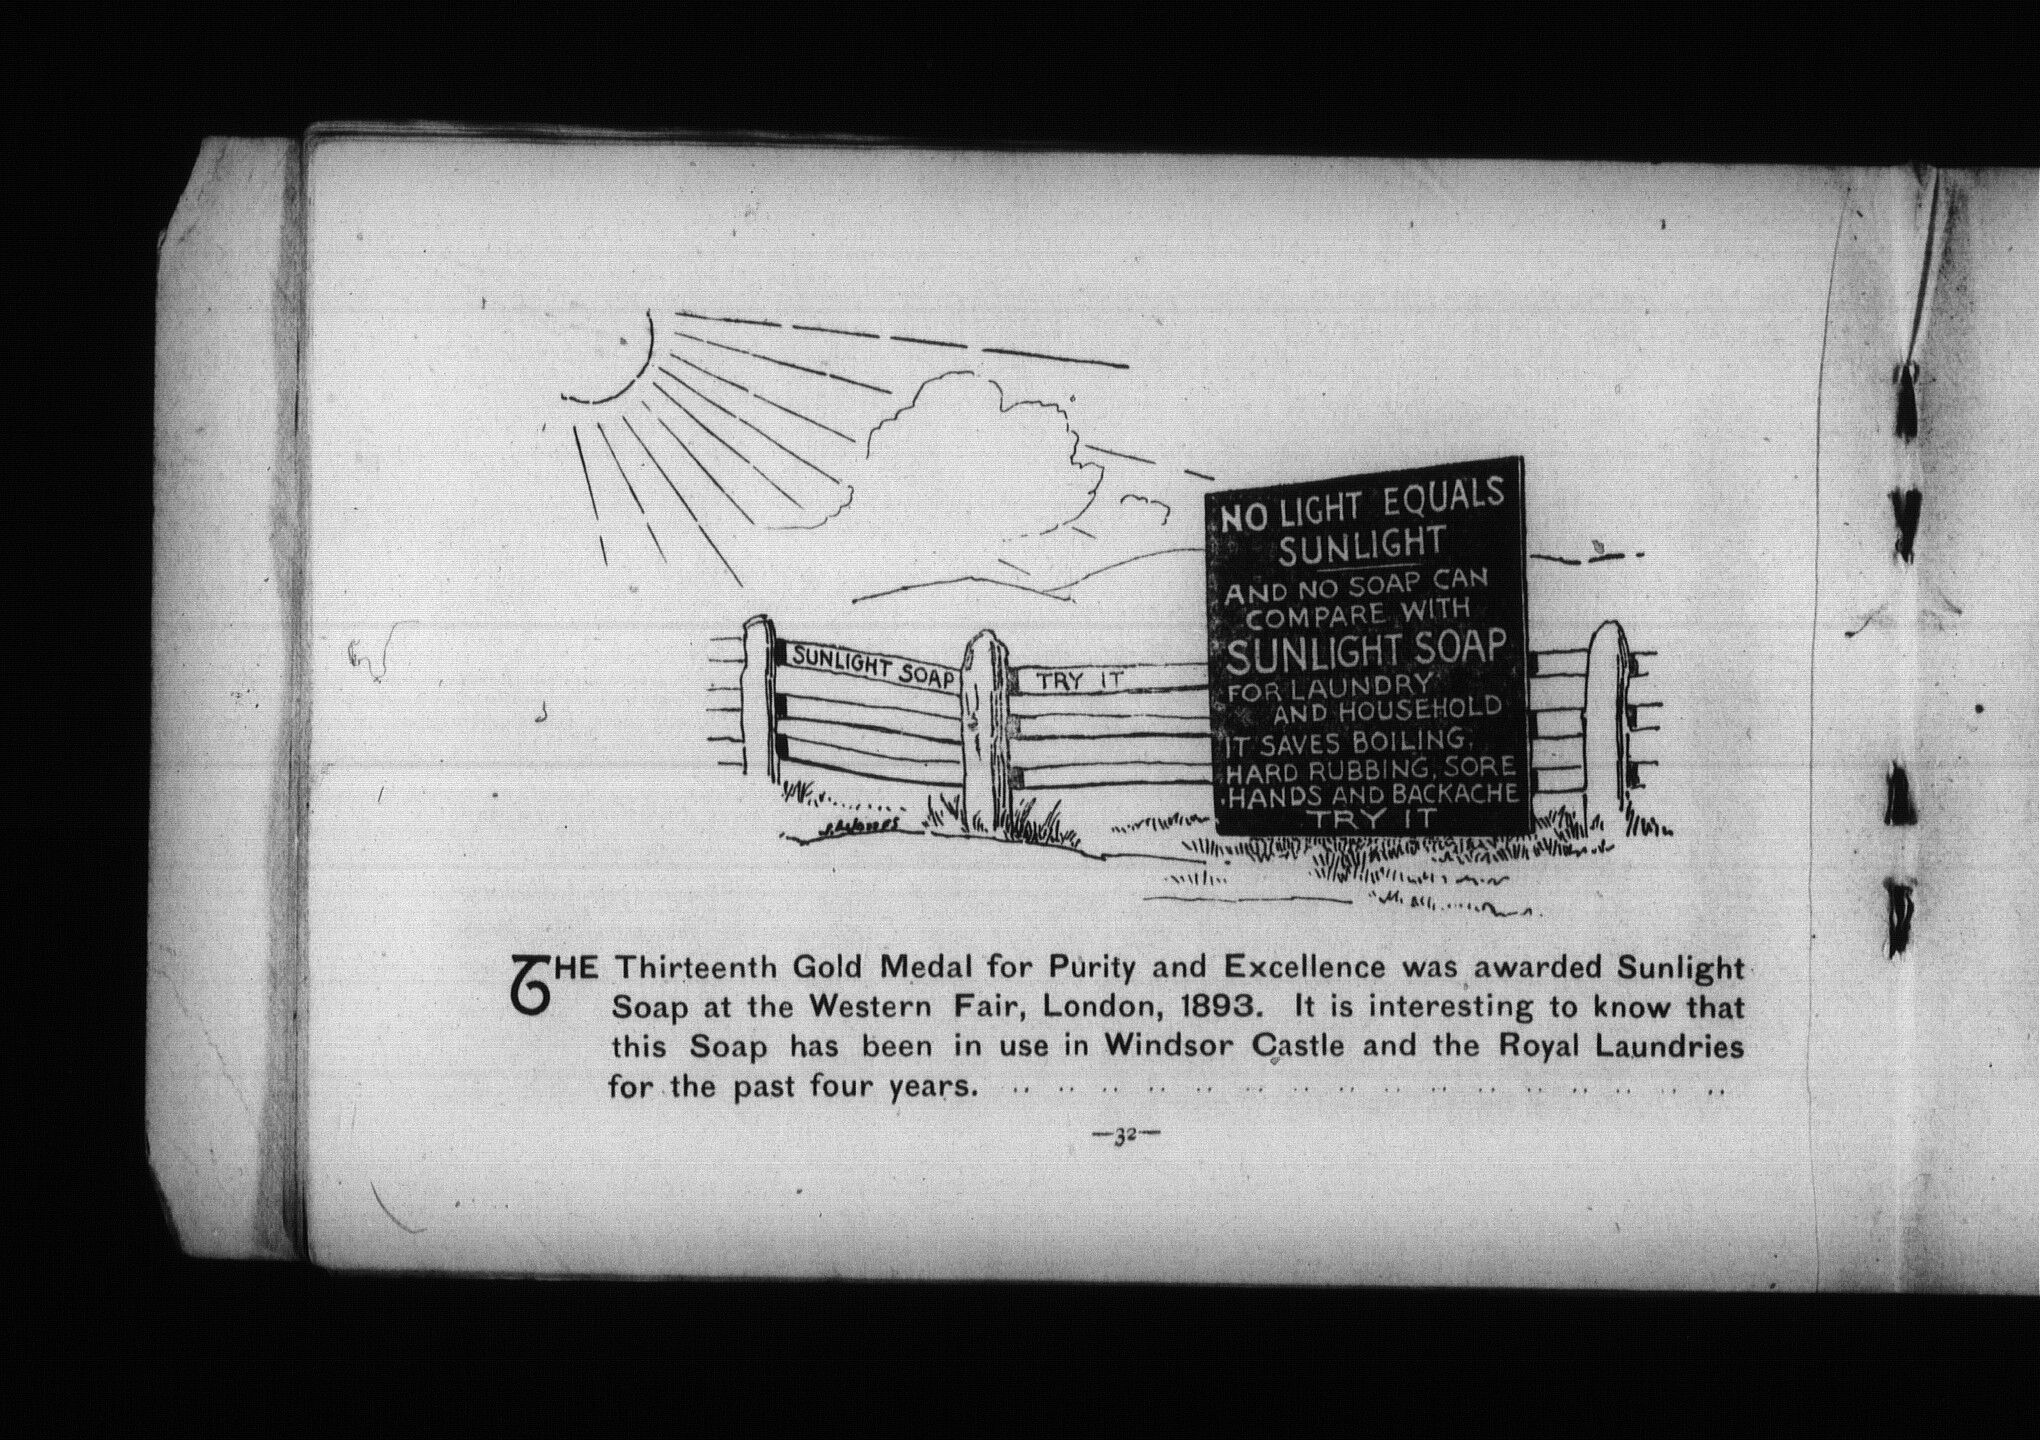 NO LIGHT EQUALS
SUNLIGHT
AND NO SOAP CAN
COMPARE WITH
SUNLIGHT SOAP
FOR LAUNDRY
AND HOUSEHOLD
IT SAVES BOILING,
HARD RUBBING, SORE
HANDS AND BACKACHE
TRY IT
SUNLIGHT SOAP
TRY IT
THE Thirteenth Gold Medal for Purity and Excellence was awarded Sunlight
Soap at the Western Fair, London, 1893. It is interesting to know that
this Soap has been in use in Windsor Castle and the Royal Laundries
for the past four years. .. .. .. .. .. .. .. .. .. .. .. .. .. .. .. ..
—32—